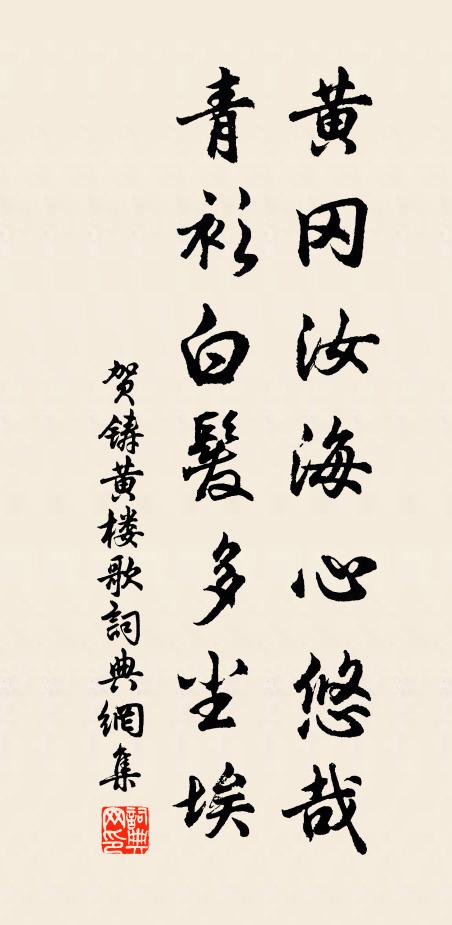 黄冈汝海心悠哉
青衫白髮多尘埃
贺铸黄楼歌詞典網集
詞典网印